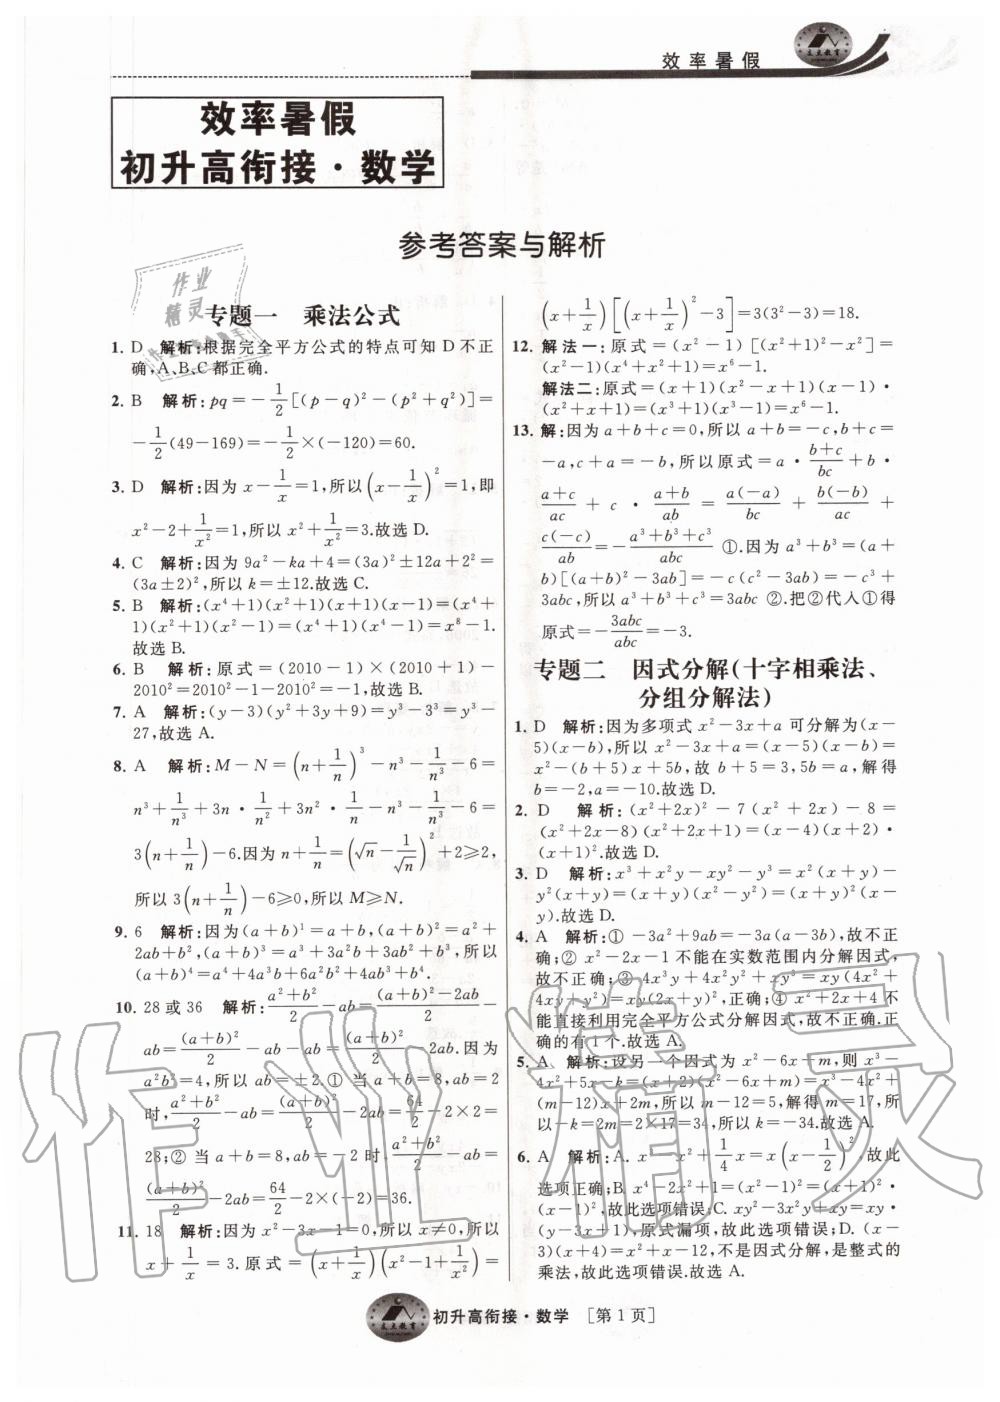 效率暑假
效率暑假
初升高衔接·数学
参考答案与解析
专题一 乘法公式
1. D 解析:根据完全平方公式的特点可知 D 不正
确,A、B、C 都正确.
2. B 解析:pq=-1/2[(p-q)²-(p²+q²)]=
-1/2(49-169)=-1/2×(-120)=60.
3. D 解析:因为 x-1/x=1,所以(x-1/x)²=1,即
x²-2+1/x²=1,所以 x²+1/x²=3.故选 D.
4. C 解析:因为 9a²-ka+4=(3a)²±12a+2²=
(3a±2)²,所以 k=±12.故选 C.
5. B 解析:(x⁴+1)(x²+1)(x+1)(x-1)=(x⁴+
1)(x²+1)(x²-1)=(x⁴+1)(x⁴-1)=x⁸-1.
故选 B.
6. B 解析:原式=(2010-1)×(2010+1)-
2010²=2010²-1-2010²=-1,故选 B.
7. A 解析:(y-3)(y²+3y+9)=y³-3³=y³-
27,故选 A.
8. A 解析:M-N=(n+1/n)³-n³-1/n³-6=
n³+1/n³+3n·1/n²+3n²·1/n-n³-1/n³-6=
3(n+1/n)-6.因为 n+1/n=(√n-1/√n)²+2≥2,
所以 3(n+1/n)-6≥0,所以 M≥N.
9. 6 解析:因为(a+b)¹=a+b,(a+b)²=a²+
2ab+b²,(a+b)³=a³+3a²b+3ab²+b³,所以
(a+b)⁴=a⁴+4a³b+6a²b²+4ab³+b⁴.
10. 28 或 36 解析:(a²+b²)/2-ab=((a+b)²-2ab)/2-
ab=(a+b)²/2-ab-ab=(a+b)²/2-2ab.因为
a²b²=4,所以 ab=±2.① 当 a+b=8,ab=2
时,(a²+b²)/2-ab=(a+b)²/2-2ab=64/2-2×2=
28;② 当 a+b=8,ab=-2 时,(a²+b²)/2-ab=
(a+b)²/2-2ab=64/2-2×(-2)=36.
11. 18 解析:因为 x²-3x-1=0,所以 x≠0,所以
x+1/x=3.原式=(x+1/x)(x²-1+1/x²)=
(x+1/x)[(x+1/x)²-3]=3(3²-3)=18.
12. 解法一:原式=(x²-1)[(x²+1)²-x²]=
(x²-1)(x⁴+x²+1)=x⁶-1.
解法二:原式=(x+1)(x²-x+1)(x-1)·
(x²+x+1)=(x³+1)(x³-1)=x⁶-1.
13. 解:因为 a+b+c=0,所以 a+b=-c,b+c=
-a,c+a=-b,所以原式=a·(b+c)/bc+b·
(a+c)/ac+c·(a+b)/ab=a(-a)/bc+b(-b)/ac+
c(-c)/ab=-(a³+b³+c³)/abc ①.因为 a³+b³=(a+
b)[(a+b)²-3ab]=-c(c²-3ab)=-c³+
3abc,所以 a³+b³+c³=3abc ②.把②代入①得
原式=-3abc/abc=-3.
专题二 因式分解(十字相乘法、
分组分解法)
1. D 解析:因为多项式 x²-3x+a 可分解为(x-
5)(x-b),所以 x²-3x+a=(x-5)(x-b)=
x²-(b+5)x+5b,故 b+5=3,5b=a,解得
b=-2,a=-10.故选 D.
2. D 解析:(x²+2x)²-7(x²+2x)-8=
(x²+2x-8)(x²+2x+1)=(x-4)(x+2)·
(x+1)².故选 D.
3. D 解析:x³+x²y-xy²-y³=x²(x+y)-
y²(x+y)=(x+y)(x²-y²)=(x+y)²(x-
y).故选 D.
4. A 解析:① -3a²+9ab=-3a(a-3b),故不正
确;② x²-2x-1 不能在实数范围内分解因式,
故不正确;③ 4x³y+4x²y²+xy³=xy(4x²+
4xy+y²)=xy(2x+y)²,正确;④ x²+2x+4 不
能直接利用完全平方公式分解因式,故不正确.正
确的有 1 个.故选 A.
5. A 解析:设另一个因式为 x²-6x+m,则 x³-
4x²+5x-k=(x+2)(x²-6x+m)=x³-4x²+
(m-12)x+2m,所以 m-12=5,解得 m=17,所
以-k=2m=2×17=34,所以 k=-34.故选 A.
6. A 解析:A. x³-x²+1/4x=x(x-1/2)²,故此
选项正确;B. x⁴-2x²+1=(x²-1)²=(x+1)²·
(x-1)²,故此选项错误;C. xy²-3x²y+xy=xy·
(y-3x+1),原式漏项,故此选项错误;D. (x-
3)(x+4)=x²+x-12,不是因式分解,是整式的
乘法,故此选项错误.故选 A.
初升高衔接·数学 [第 1 页]
作业精灵